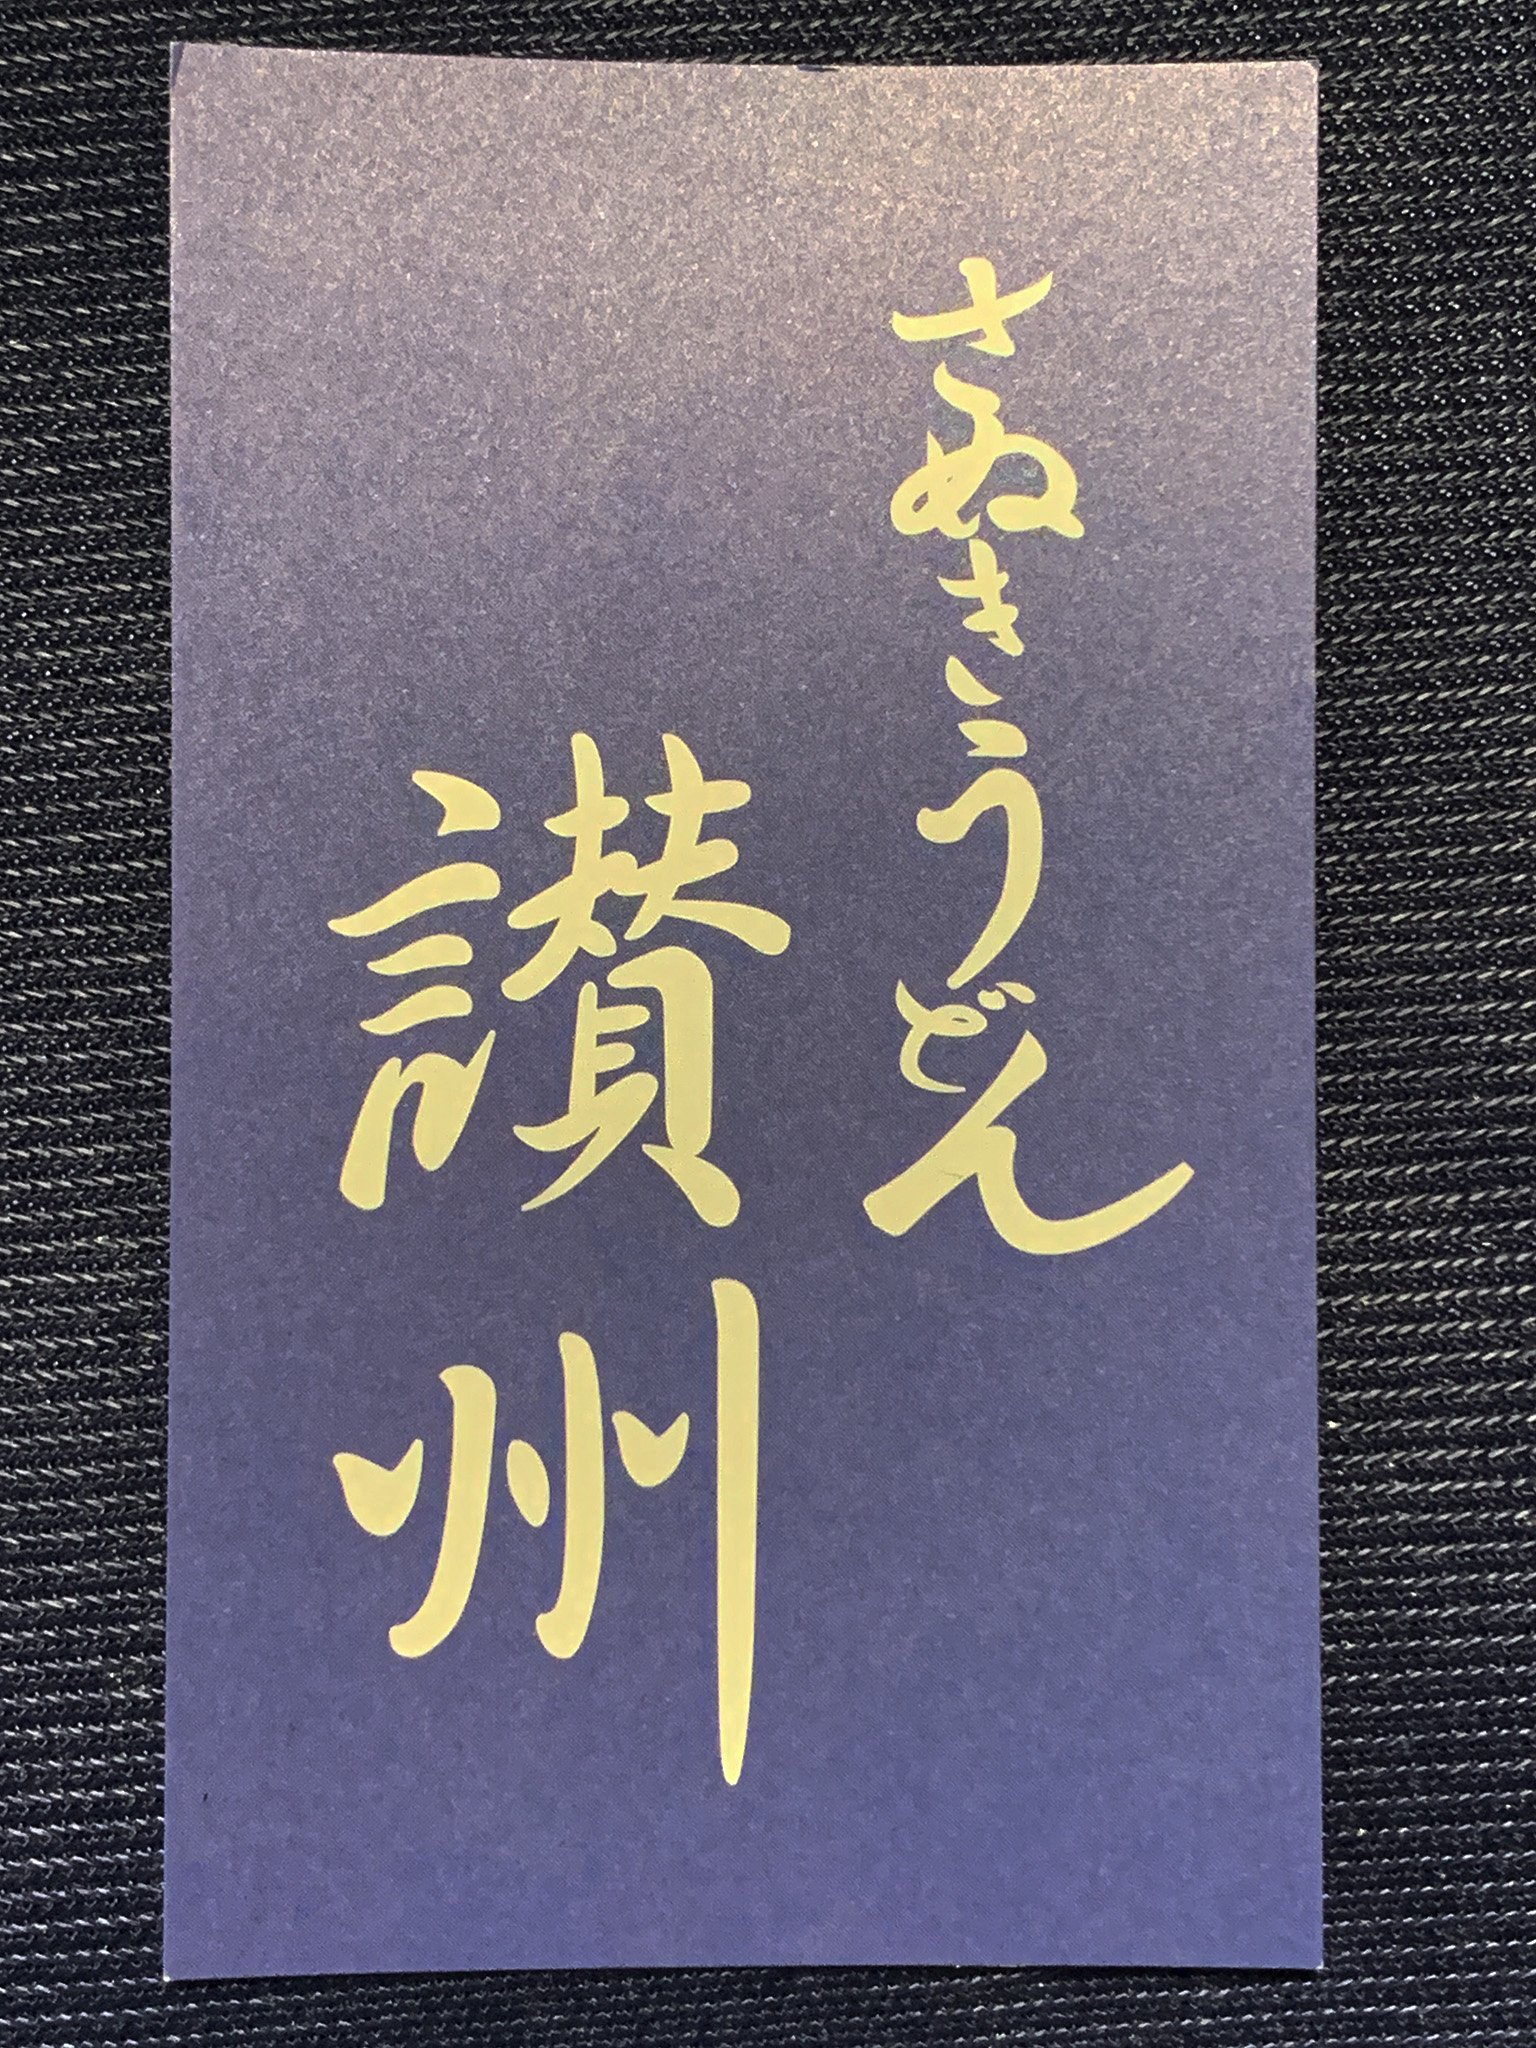 さぬきうどん
讃州